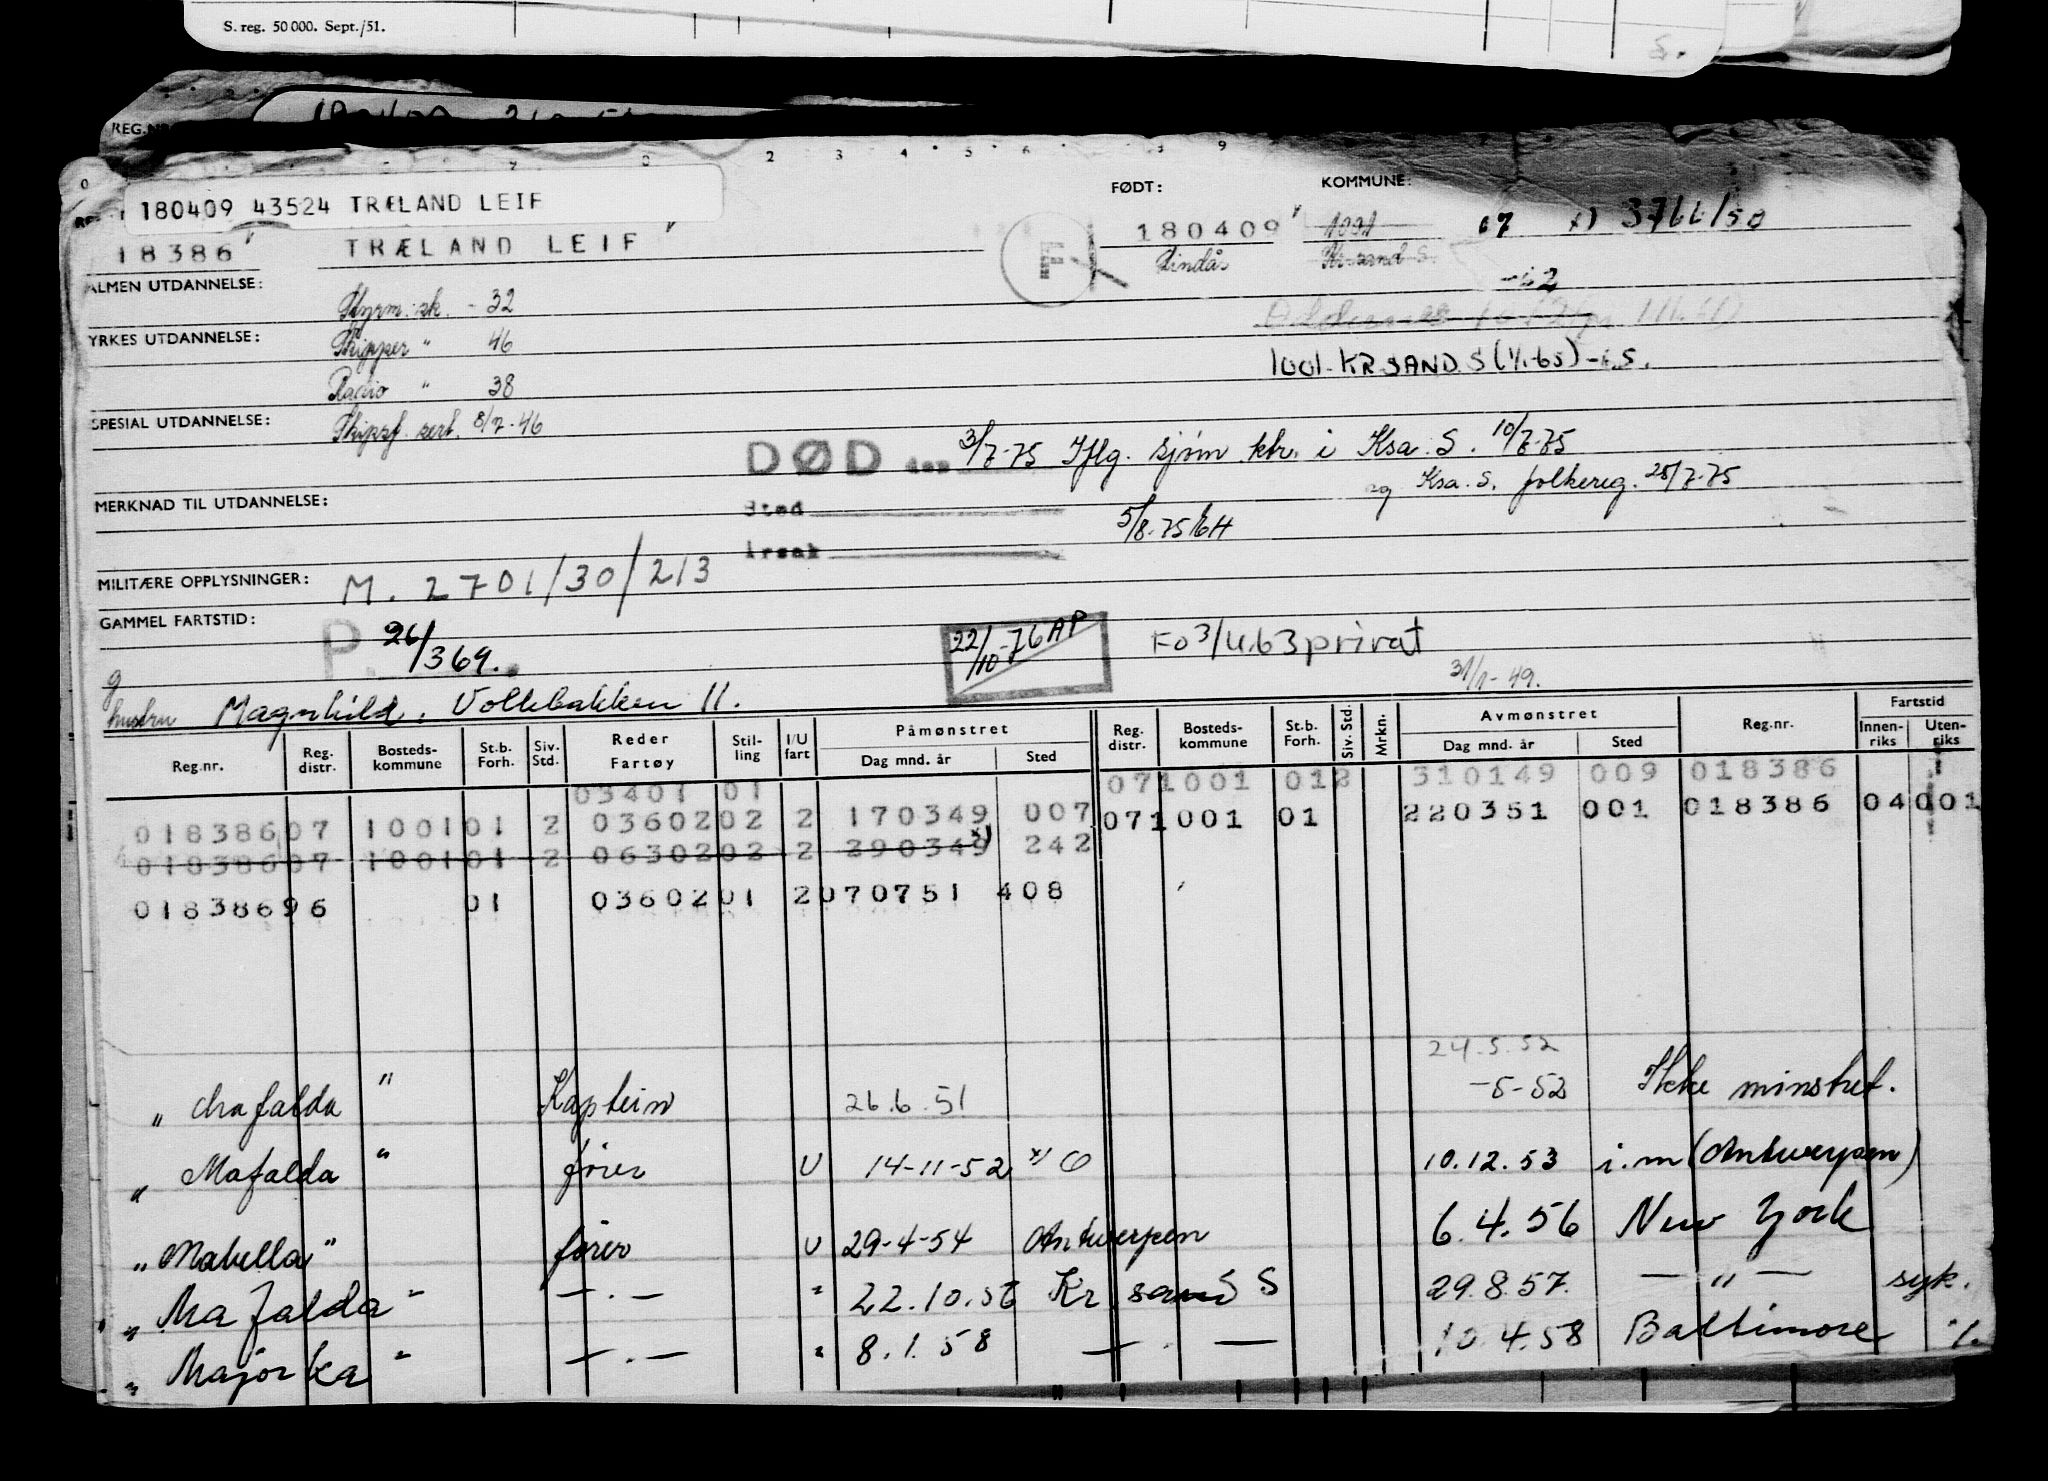 S. reg. 50 000. Sept./51.
REG.NR
FØDT:
KOMMUNE:
180409 43524 TRÆLAND LEIF
18386 TRÆLAND LEIF
180409
1001
07
x) 3766/50
Lindås
Kr.sand S.
ALMEN UTDANNELSE:
Styrm.sk. - 32
YRKES UTDANNELSE:
Skipper " 46
1001 KR SAND S (1/1-65) -
Radio " 38
SPESIAL UTDANNELSE:
Skipsf. sert. 8/7-46
DØD den 3/7-75 Iflg. sjøm ktr. i Ksa. S. 10/7-75
og Ksa. S. folkereg. 25/7-75
MERKNAD TIL UTDANNELSE:
Sted
5/8-75
Årsak
MILITÆRE OPPLYSNINGER:
M. 2701/30/213
GAMMEL FARTSTID:
P. 26/369.
22/10-76 AP
FO 3/4.63 privat
31/1-49.
g
hustru Magnhild, Vollebakken 11.
Reg.nr.
Reg. distr.
Bosteds-kommune
St.b. Forh.
Siv. Std.
Reder Fartøy
Stil-ling
I/U fart
Påmønstret
Dag mnd. år
Sted
Reg. distr.
Bosteds-kommune
St.b. Forh.
Siv. Std.
Mrkn.
Avmønstret
Dag mnd. år
Sted
Reg.nr.
Fartstid
Innen-riks
Uten-riks
03401 01 071001 012 310149 009 018386
018386 07 1001 01 2 03602 02 2 170349 007 071001 01 220351 001 018386 04 001
018386 07 1001 01 2 06302 02 2 290349 x) 242
018386 96 01 03602 01 2 070751 408
24.5.52
" Mafalda " Kaptein 26.6.51 -5-52 Ikke minstret.
" Mafalda " fører U 14-11-52 x) 10.12.53 i.m (Antwerpen)
" Mabella " fører U 29-4-54 Antwerpen 6.4.56 New York
" Mafalda " — . — " 22.10.56 Kr. sand S 29.8.57. — " — syk.
" Majorka " — . — " 8.1.58 — . — 10.4.58 Baltimore